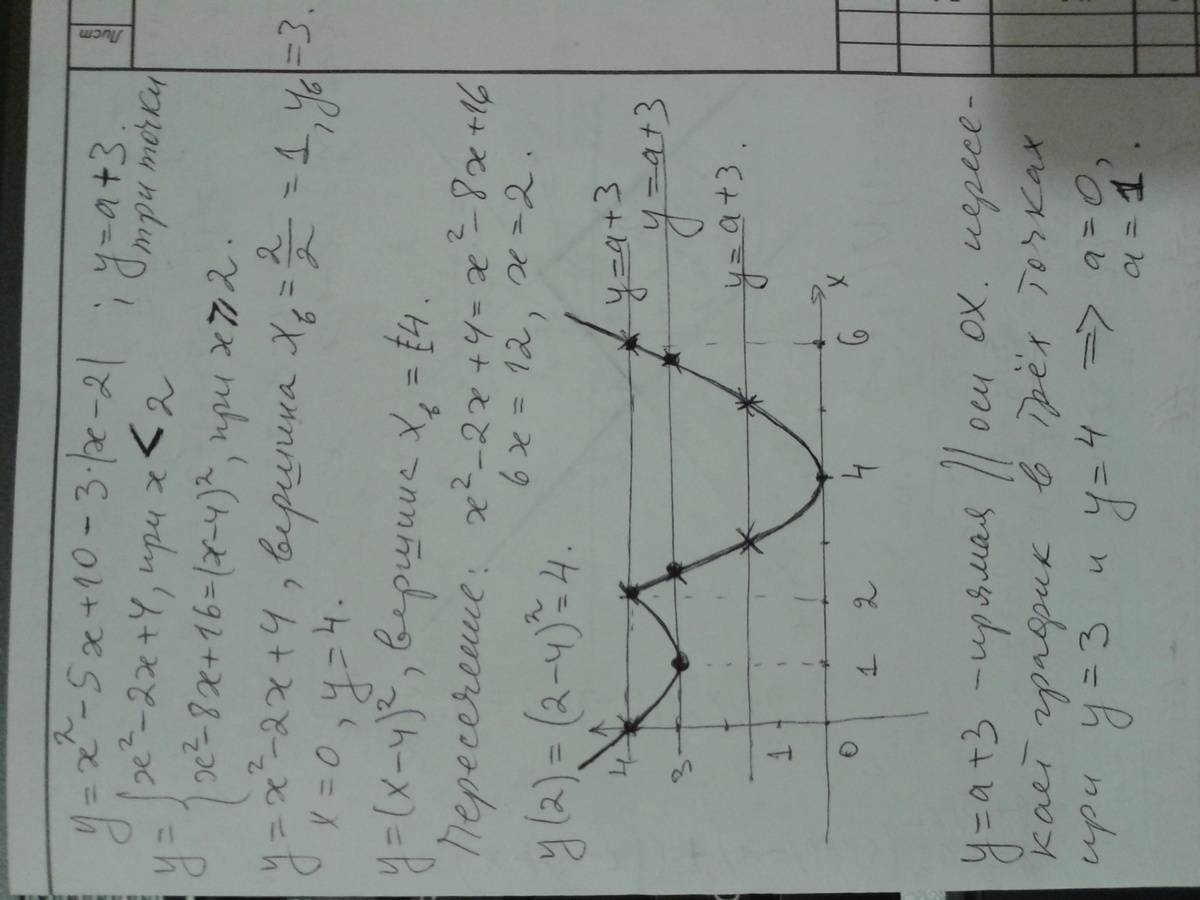 Лист
y = x² - 5x + 10 - 3·|x - 2| ; y = a + 3.
три точки
y = { x² - 2x + 4, при x < 2
x² - 8x + 16 = (x - 4)², при x ⩾ 2.
y = x² - 2x + 4, вершина x_в = 2/2 = 1, y_в = 3.
x = 0, y = 4.
y = (x - 4)², вершина x_в = 4.
Пересечение: x² - 2x + 4 = x² - 8x + 16
6x = 12, x = 2.
y(2) = (2 - 4)² = 4.
y = a + 3
y = a + 3
y = a + 3.
4
3
1
0 1 2 4 6 x
y = a + 3 - прямая || оси ох. пересе-
кает график в трёх точках
при y = 3 и y = 4 => a = 0,
a = 1.